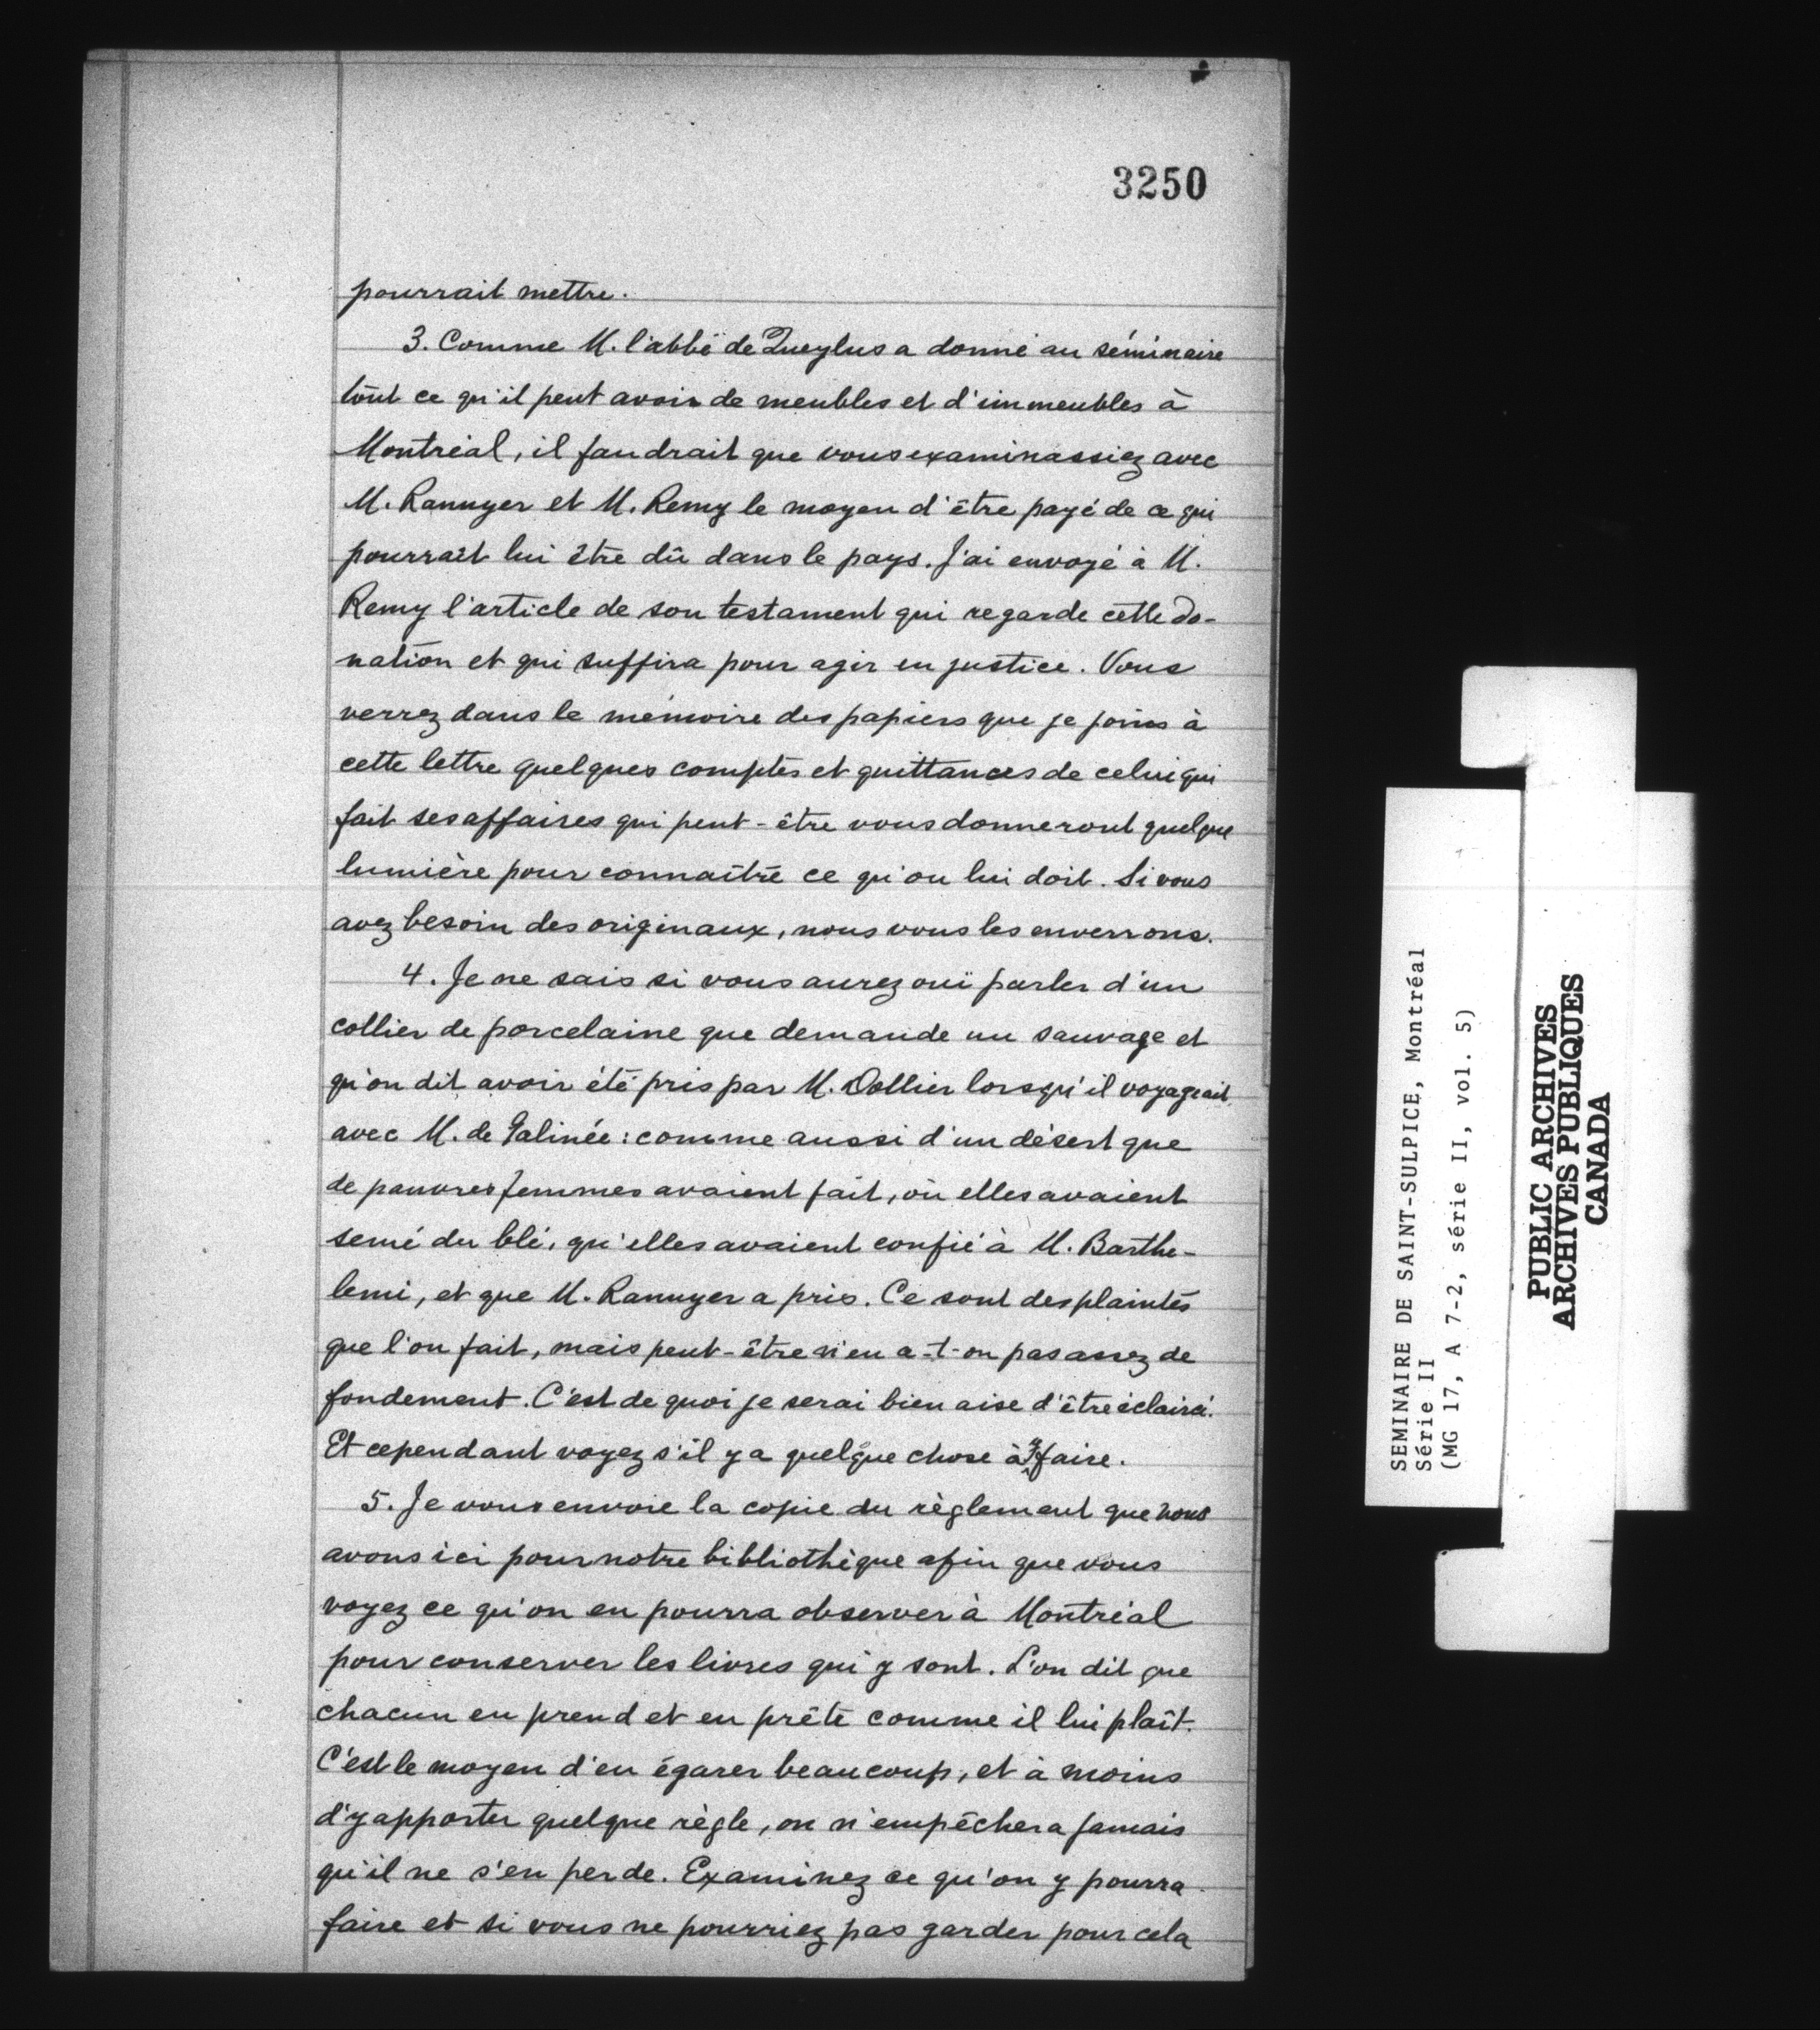 3250
pourrait mettre.
3. Comme M. l'abbé de Queylus a donné au séminaire
tout ce qu'il peut avoir de meubles et d'immeubles à
Montréal, il faudrait que vous examinassiez avec
M. Ranuyer et M. Remy le moyen d'être payé de ce qui
pourrait lui être dû dans le pays. J'ai envoyé à M.
Remy l'article de son testament qui regarde cette do-
nation et qui suffira pour agir en justice. Vous
verrez dans le mémoire des papiers que je joins à
cette lettre quelques comptes et quittances de celui qui
fait ses affaires qui peut-être vous donneront quelque
lumière pour connaître ce qu'on lui doit. Si vous
avez besoin des originaux, nous vous les enverrons.
4. Je ne sais si vous aurez ouï parler d'un
collier de porcelaine que demande un sauvage et
qu'on dit avoir été pris par M. Dollier lorsqu'il voyageait
avec M. de Galinée : comme aussi d'un désert que
de pauvres femmes avaient fait, où elles avaient
semé du blé, qu'elles avaient confié à M. Barthe-
lemi, et que M. Ranuyer a pris. Ce sont des plaintes
que l'on fait, mais peut-être n'en a-t-on pas assez de
fondement. C'est de quoi je serai bien aise d'être éclairci.
Et cependant voyez s'il y a quelque chose à y faire.
5. Je vous envoie la copie du règlement que nous
avons ici pour notre bibliothèque afin que vous
voyez ce qu'on en pourra observer à Montréal
pour conserver les livres qui y sont. L'on dit que
chacun en prend et en prête comme il lui plaît.
C'est le moyen d'en égarer beaucoup, et à moins
d'y apporter quelque règle, on n'empêchera jamais
qu'il ne s'en perde. Examinez ce qu'on y pourra
faire et si vous ne pourriez pas garder pour cela
SEMINAIRE DE SAINT-SULPICE, Montréal
Série II
(MG 17, A 7-2, série II, vol. 5)
PUBLIC ARCHIVES
ARCHIVES PUBLIQUES
CANADA